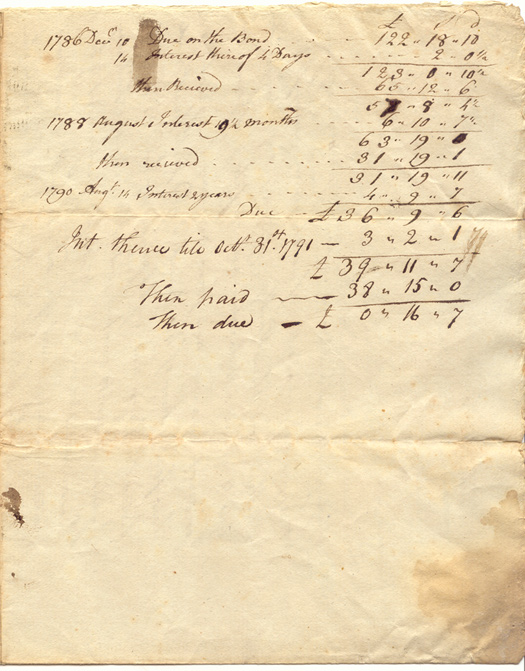 £ s d
1786 Decr 10 Due on the Bond - - - - 122 " 18 " 10
14 Interest there of 4 Days - - - - 2 " 0 ½
123 " 0 " 10 ½
then Recieved - - - - 65 " 12 " 6
57 " 8 " 4 ½
1788 August Interest 19 ½ months - - - 6 " 10 " 7 ½
63 " 19 " 0
then recieved - - - - 31 " 19 " 1
31 " 19 " 11
1790 Augt. 14 Interest 2 years - - - - 4 " 9 " 7
Due - £ 36 " 9 " 6
Int. thence till Octr. 31st. 1791 — 3 " 2 " 1
£ 39 " 11 " 7
Then paid — 38 " 15 " 0
Then due — £ 0 " 16 " 7